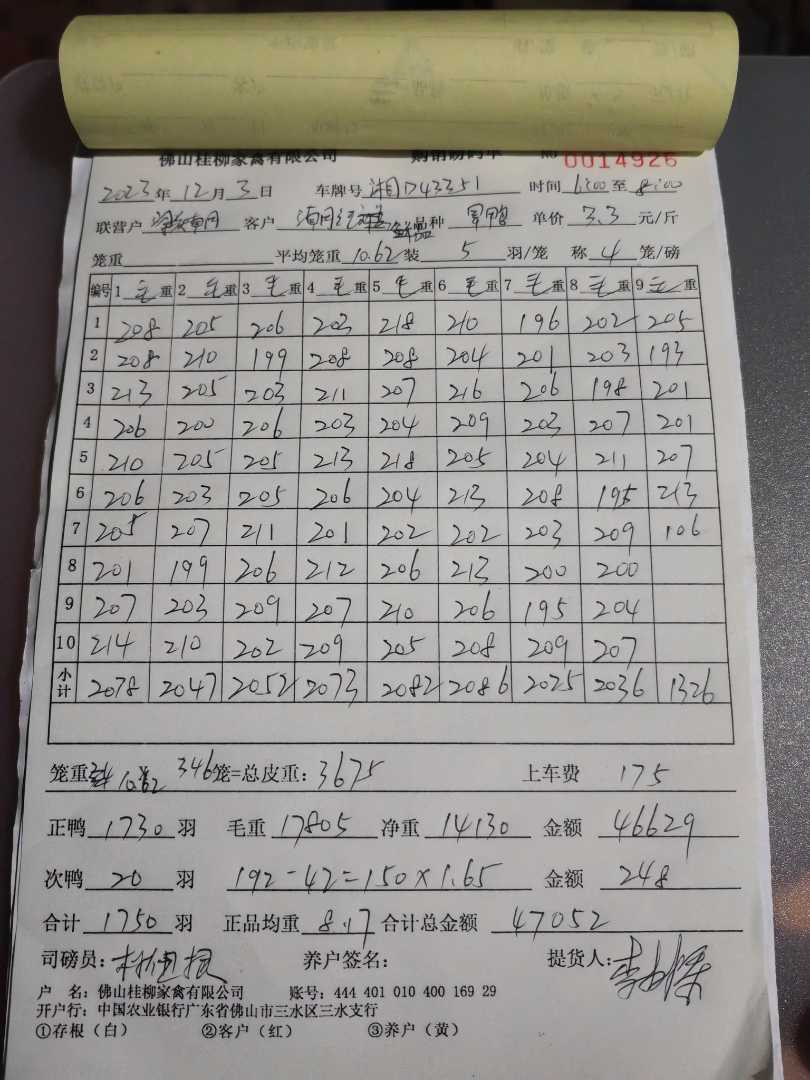 佛山桂柳家禽有限公司 购销磅码单 No 0014926
2023年12月3日 车牌号 湘D43351 时间 6:00至8:00
联营户 客户 品种 单价 3.3 元/斤
笼重 平均笼重 10.62 装 5 羽/笼 称 4 笼/磅
编号 1 毛重 2 毛重 3 毛重 4 毛重 5 毛重 6 毛重 7 毛重 8 毛重 9 毛重
1 208 205 206 203 218 210 196 202 205
2 208 210 199 208 208 204 201 203 193
3 213 205 203 211 207 216 206 198 201
4 206 200 206 203 204 209 203 207 201
5 210 205 205 213 218 205 204 211 207
6 206 203 205 206 204 213 208 195 213
7 205 207 211 201 202 202 203 209 106
8 201 199 206 212 206 213 200 200
9 207 203 209 207 210 206 195 204
10 214 210 202 209 205 208 209 207
小计 2078 2047 2052 2073 2082 2086 2025 2036 1326
笼重 10.62 346 笼=总皮重: 3675 上车费 175
正鸭 1730 羽 毛重 17805 净重 14130 金额 46629
次鸭 20 羽 192-42=150×1.65 金额 248
合计 1750 羽 正品均重 8.17 合计总金额 47052
司磅员: 养户签名: 提货人:
户 名: 佛山桂柳家禽有限公司 账号: 444 401 010 400 169 29
开户行: 中国农业银行广东省佛山市三水区三水支行
①存根(白) ②客户(红) ③养户(黄)